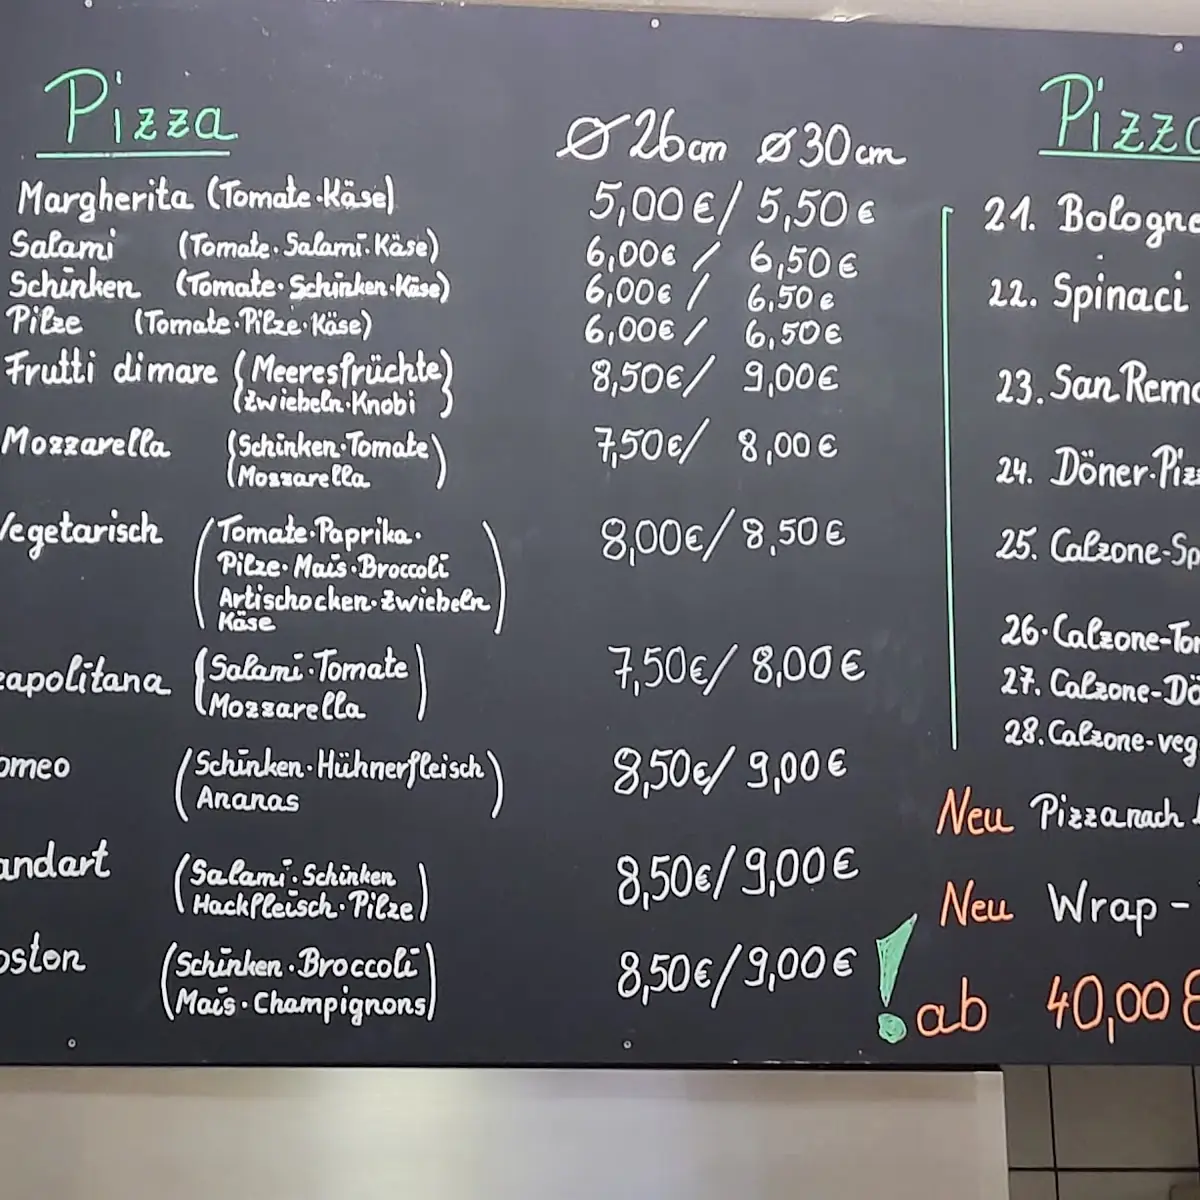 Pizza
Ø 26cm Ø 30cm
Margherita (Tomate·Käse) 5,00€ / 5,50€
Salami (Tomate·Salami·Käse) 6,00€ / 6,50€
Schinken (Tomate·Schinken·Käse) 6,00€ / 6,50€
Pilze (Tomate·Pilze·Käse) 6,00€ / 6,50€
Frutti di mare (Meeresfrüchte) 8,50€ / 9,00€
(Zwiebeln·Knobi)
Mozzarella (Schinken·Tomate) 7,50€ / 8,00€
(Mozzarella)
Vegetarisch (Tomate·Paprika· 8,00€ / 8,50€
Pilze·Mais·Broccoli
Artischocken·Zwiebeln
Käse)
eapolitana (Salami·Tomate 7,50€ / 8,00€
Mozzarella)
omeo (Schinken·Hühnerfleisch 8,50€ / 9,00€
Ananas)
andart (Salami·Schinken 8,50€ / 9,00€
Hackfleisch·Pilze)
oston (Schinken·Broccoli 8,50€ / 9,00€
Mais·Champignons)
Pizza
21. Bologne
22. Spinaci
23. San Remo
24. Döner-Piz
25. Calzone-Sp
26. Calzone-To
27. Calzone-Dö
28. Calzone-veg
Neu Pizza nach
Neu Wrap -
! ab 40,00€